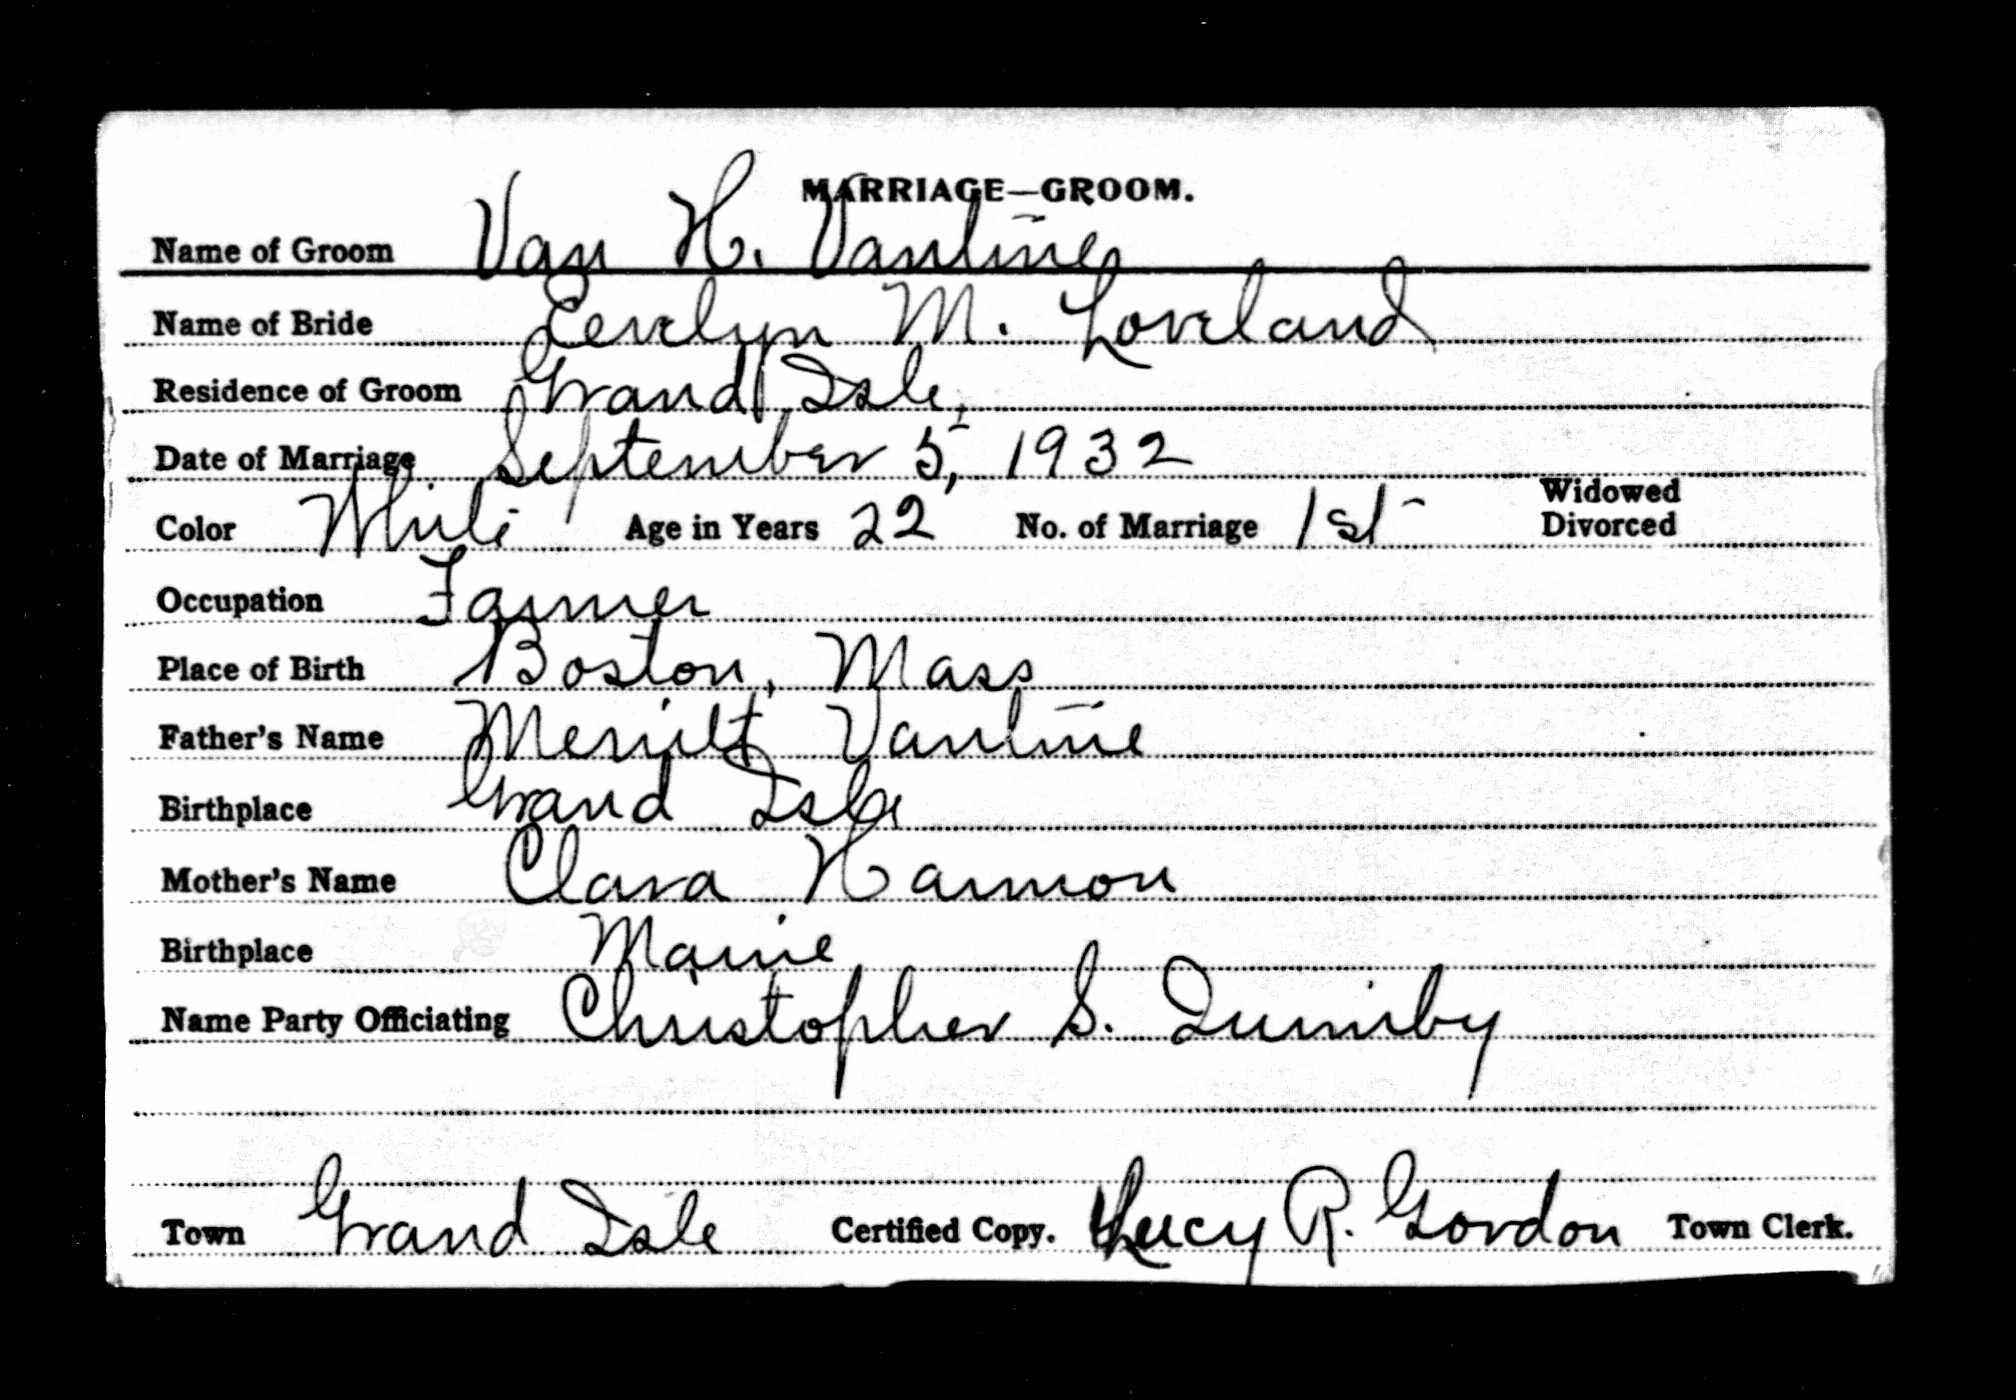 MARRIAGE—GROOM.
Name of Groom Van H. Vantine
Name of Bride Eevelyn M. Loveland
Residence of Groom Grand Isle,
Date of Marriage September 5, 1932
Color White Age in Years 22 No. of Marriage 1st Widowed Divorced
Occupation Farmer
Place of Birth Boston, Mass
Father's Name Merritt Vantine
Birthplace Grand Isle
Mother's Name Clara Harmon
Birthplace Maine
Name Party Officiating Christopher S. Quimby
Town Grand Isle Certified Copy. Lucy R. Gordon Town Clerk.